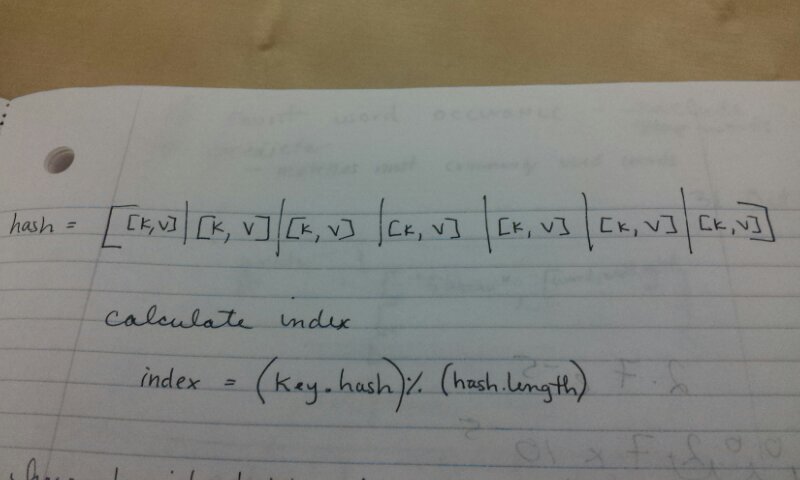 hash = [ [K,V] | [K, V] | [K, V] | [K, V] | [K, V] | [K, V] | [K,V] ]
calculate index
index = (key.hash) % (hash.length)